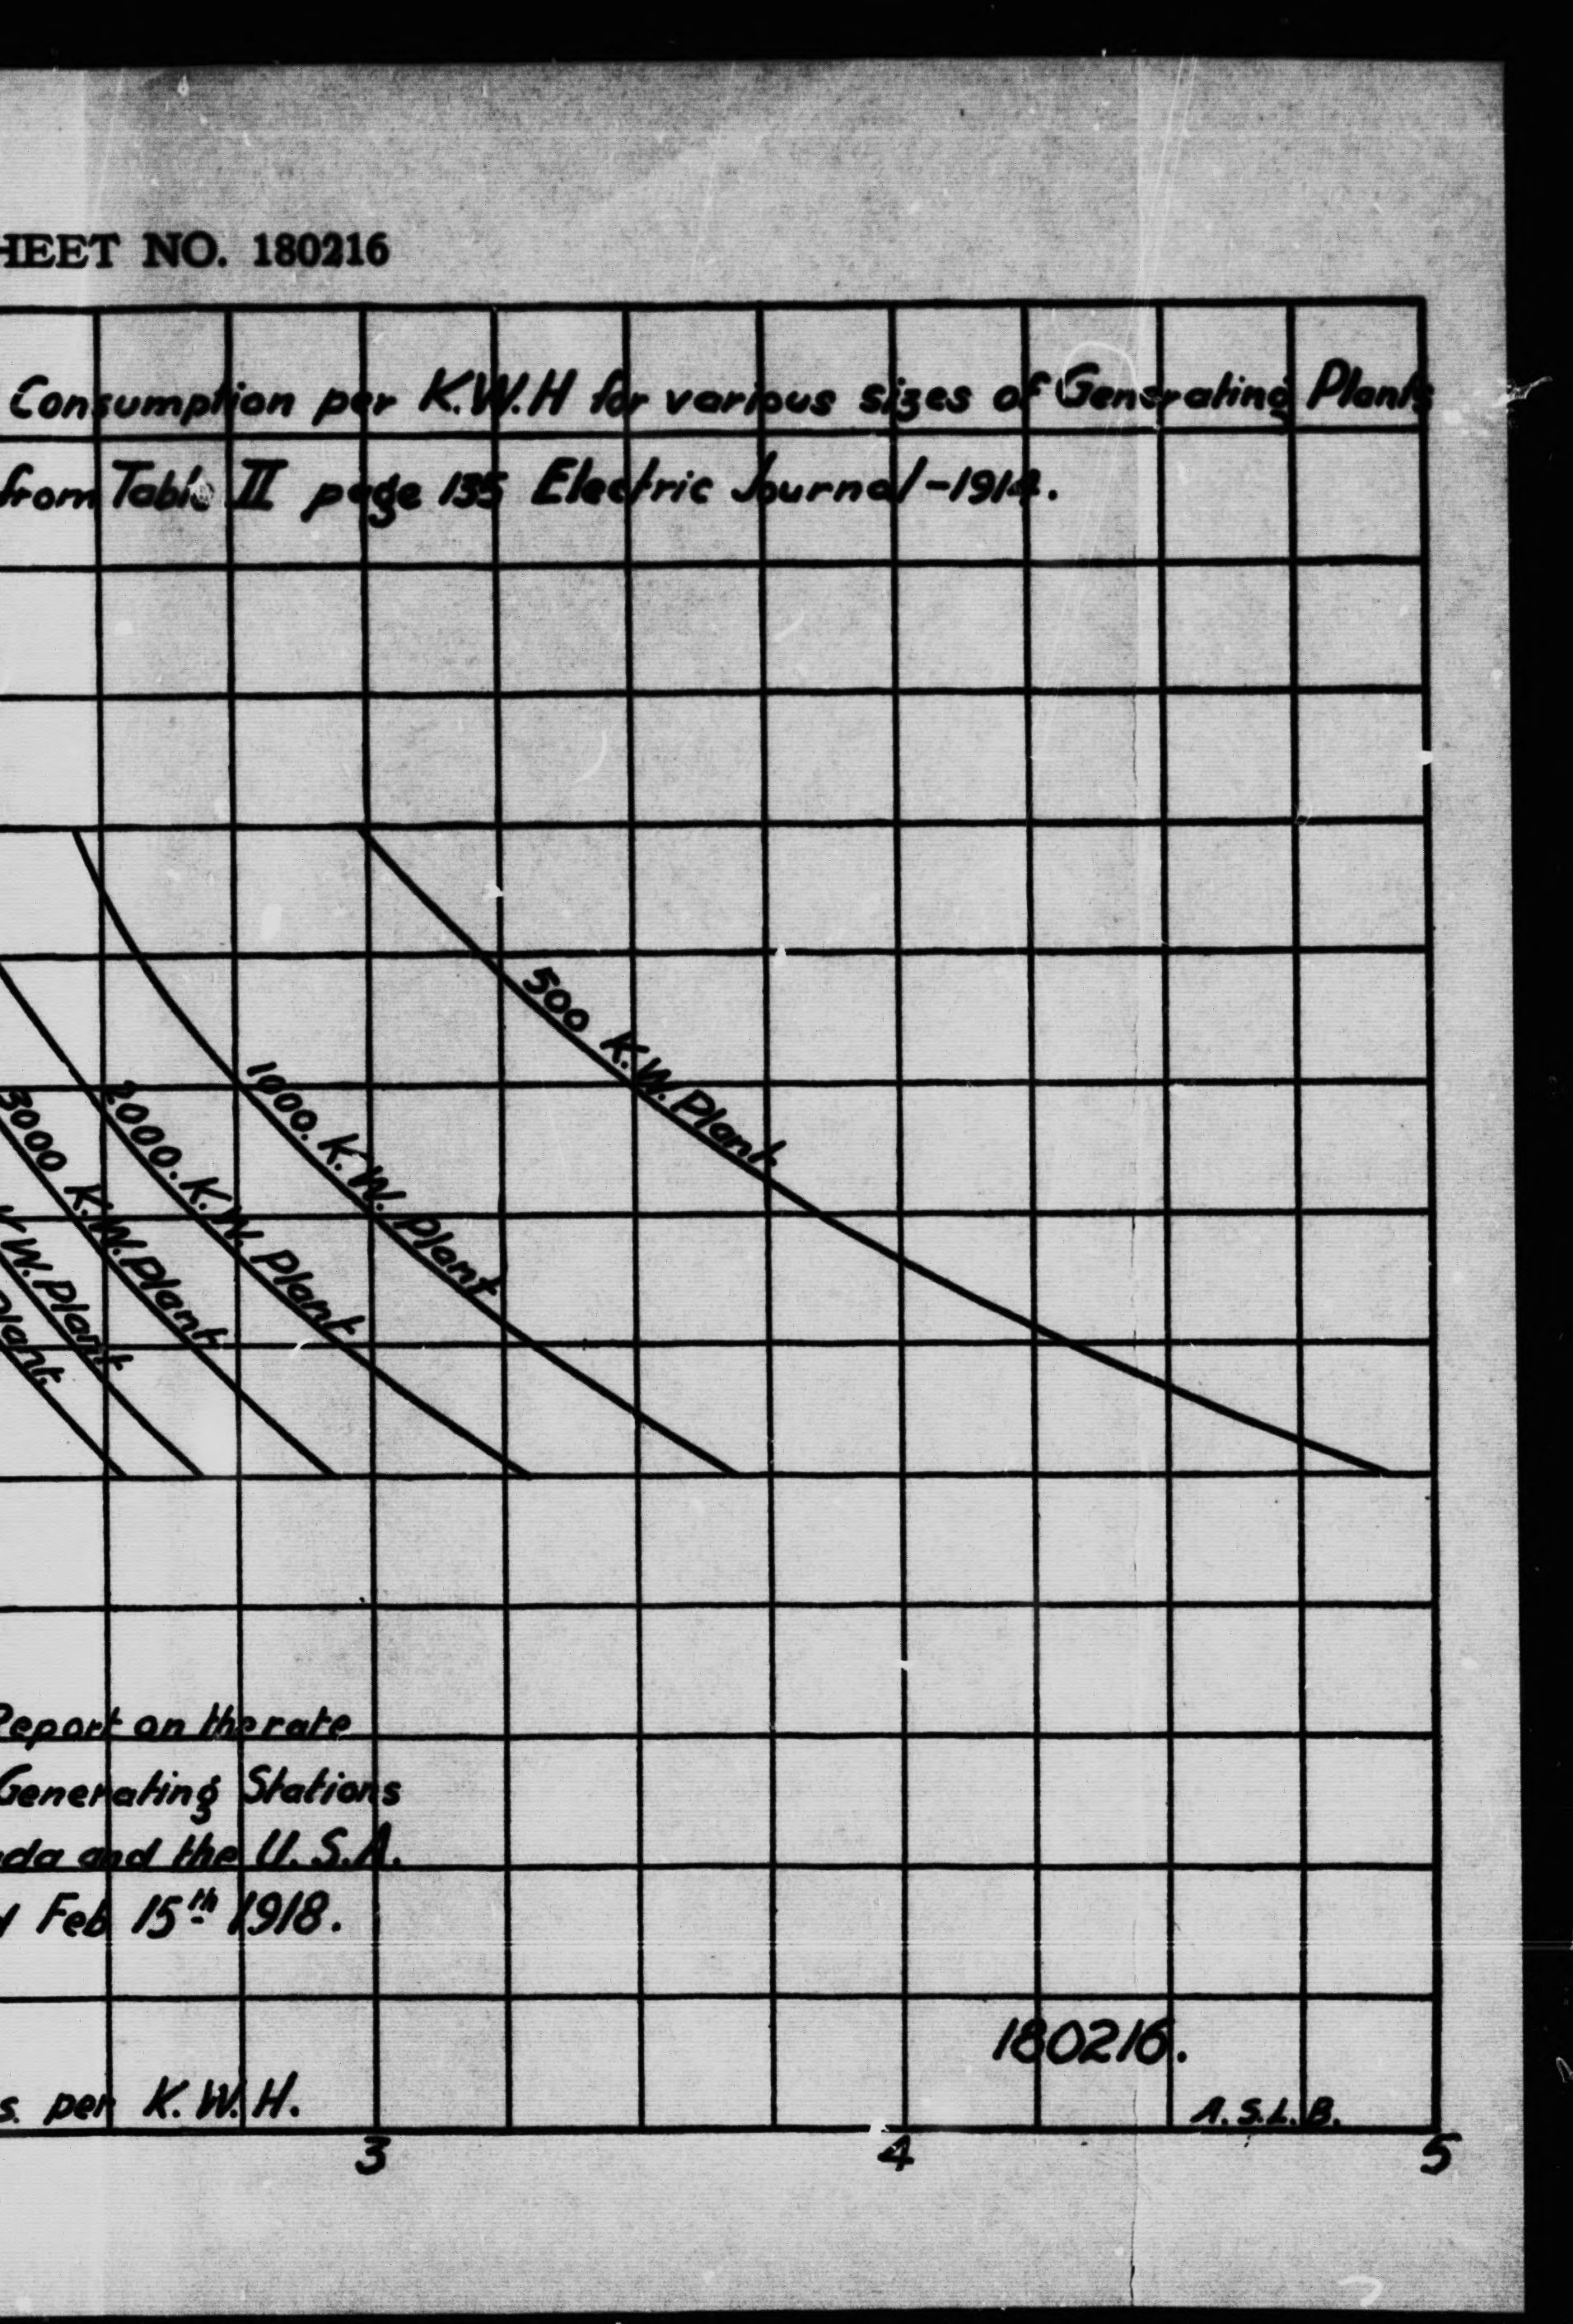 HEET NO. 180216
Consumption per K.W.H for various sizes of Generating Plants
from Table II page 135 Electric Journal-1914.
500 K.W. Plant.
1000. K.W. Plant
2000. K.W. Plant
3000 K.W. Plant
W. Plant
Plant.
Report on the rate
Generating Stations
da and the U.S.A.
Feb 15th 1918.
180216.
s. per K.W.H.
A.S.L.B.
3 4 5